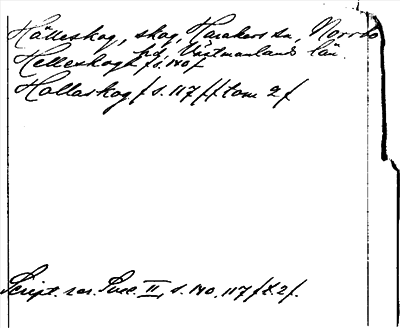 Hälleskog, skog, Harakers sn, Norrbo
hd, Västmanlands län.
Helleskogh / s. 110 /
Hallaskog / s. 117 // tom 2 /
Script. rer. Svec. II, s. 110, 117 / t. 2 /.